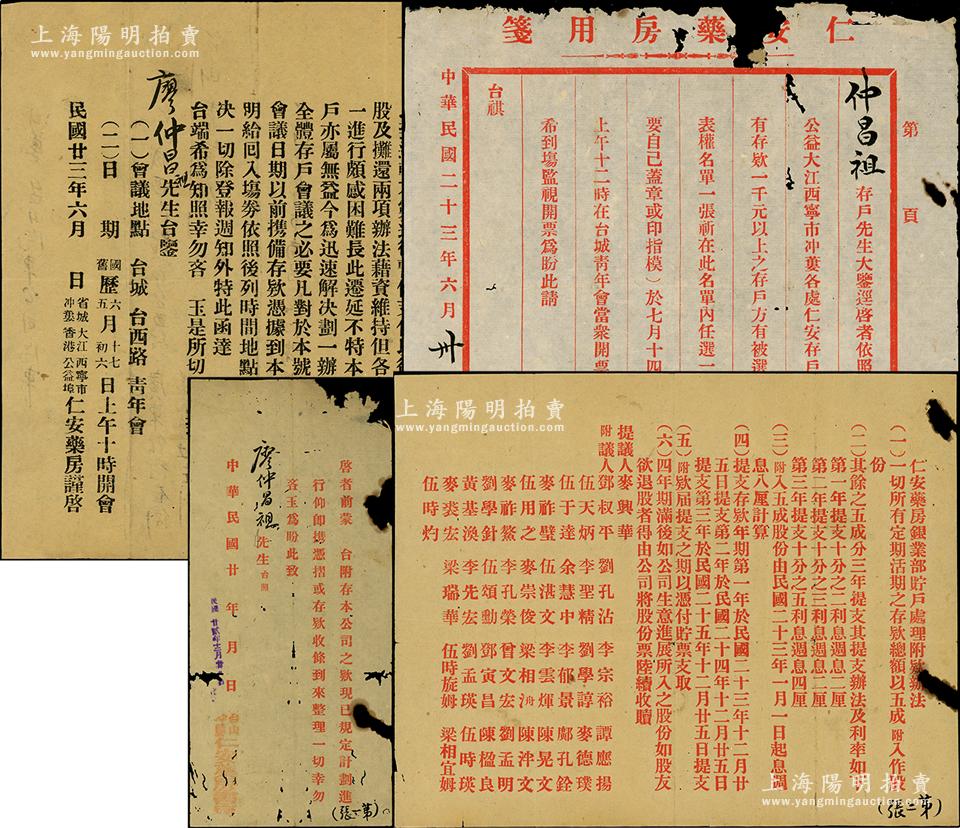 上海陽明拍賣
www.yangmingauction.com
股及攤還兩項辦法藉資維持但各
一進行頗感困難長此遷延不特本
戶亦屬無益今為迅速解决劃一辦
全體存戶會議之必要凡對於本號
會議日期以前携備存欵憑據到本
明給囘入塲劵依照後列時間地點
决一切除登報週知外特此函達
台端希為知照幸勿吝 玉是所切
廖仲昌祖先生台鑒
（一）會議地點 台城 台西路 靑年會
（二）日 期 國舊曆六五月十七初六日上午十時開會
民國廿三年六月 日 省城 大江 西寧市 冲蔞 香港 公益埠 仁安藥房謹啓
上海陽明拍賣
www.yangmingauction.com
仁安藥房用箋
第 頁
仲昌祖存戶先生大鑒逕啓者依照
公益大江西寧市冲蔞各處仁安存戶
有存欵一千元以上之存戶方有被選
表權名單一張祈在此名單內任選一
要自己蓋章或印指模）於七月十四
上午十二時在台城靑年會當衆開票
希到塲監視開票為盼此請
台祺
中華民國二十三年六月卅
啓者前蒙 台附存本公司之欵現已規定計劃進
行仰卽携憑摺或存欵收條到來整理一切幸勿
吝玉為盼此致
廖仲昌祖先生台照
中華民國廿 年 月 日
（第一張）
上海陽明拍賣
www.yangmingauction.com
仁安藥房銀業部貯戶處理附欵辦法
（一）一切所有定期活期之存欵總額以五成附入作股
份
（二）其餘之五成分三年提支其提支辦法及利率如
第一年提支十分之二利息週息二厘
第二年提支十分之三利息週息二厘
第三年提支十分之五利息週息四厘
（三）附入五成股份由民國二十三年一月一日起息週
息八厘計算
（四）提支存欵年期第一年於民國二十三年十二月廿
五日提支第二年於民國二十四年十二月廿五日
提支第三年於民國二十五年十二月廿五日提支
（五）附欵屆提支之期以憑付貯票支取
（六）四年期滿後如公司生意進展所入之股份如股友
欲退股者得由公司將股份票陸續收贖
提議人麥興華
附議人鄧叔平 劉孔沾 李宗裕 譚應揚
伍天炳 李聖精 劉學諄 麥德璞
伍于達 余慧中 李郁景 鄺孔銓
麥祚璧 伍湛文 李雲煇 陳晃文
伍用之 麥崇俊 梁相 陳泮文
麥祚鰲 李孔榮 曾文宏 劉孟明
劉學針 伍頌勳 鄧寅昌 陳楹良
黃基渙 李先宏 劉孟瑛 伍時瑛
麥裘宏 梁瑞華 伍時旋姆 梁相宜姆
伍時灼
（第二張）
上海陽明拍賣
www.yangmingauction.com